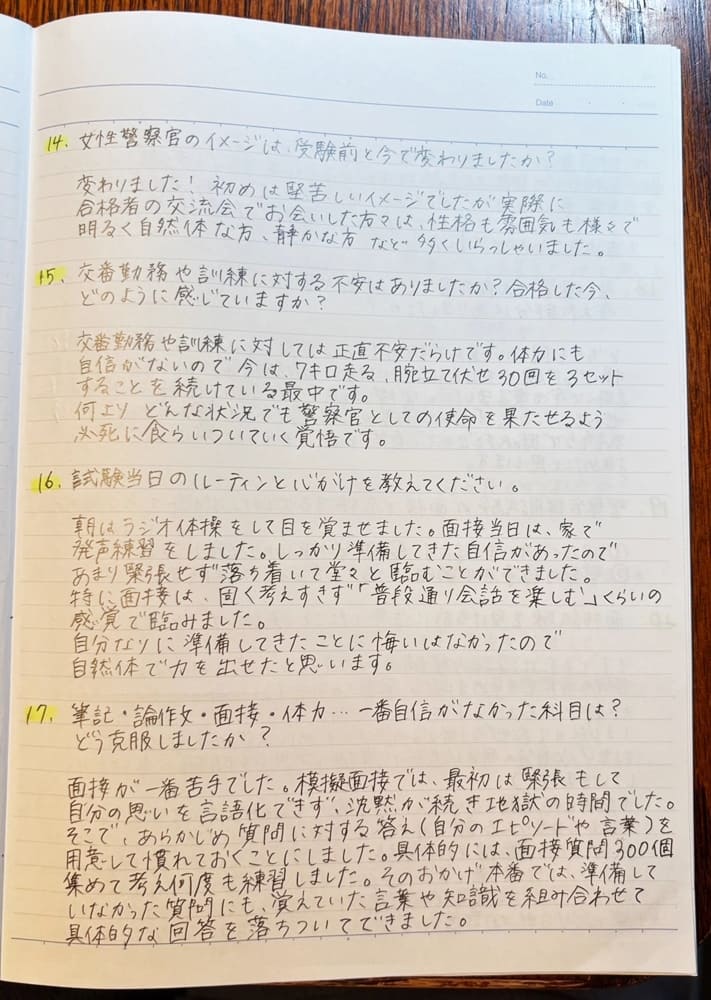 No.
Date
14. 女性警察官のイメージは、受験前と今で変わりましたか?
変わりました! 初めは堅苦しいイメージでしたが実際に
合格者の交流会でお会いした方々は、性格も雰囲気も様々で
明るく自然体な方、静かな方 など 多くいらっしゃいました。
15. 交番勤務や訓練に対する不安はありましたか?合格した今、
どのように感じていますか?
交番勤務や訓練に対しては正直不安だらけです。体力にも
自信がないので今は、7キロ走る、腕立て伏せ30回を3セット
することを続けている最中です。
何より どんな状況でも警察官としての使命を果たせるよう
必死に食らいついていく覚悟です。
16. 試験当日のルーティンと心がけを教えてください。
朝はラジオ体操をして目を覚ませました。面接当日は、家で
発声練習をしました。しっかり準備してきた自信があったので
あまり緊張せず落ち着いて堂々と臨むことができました。
特に面接は、固く考えすぎず「普段通り会話を楽しむ」くらいの
感覚で臨みました。
自分なりに準備してきたことに悔いはなかったので
自然体で力を出せたと思います。
17. 筆記・論作文・面接・体力…一番自信がなかった科目は?
どう克服しましたか?
面接が一番苦手でした。模擬面接では、最初は緊張もして
自分の思いを言語化できず、沈黙が続き地獄の時間でした。
そこで、あらかじめ質問に対する答え(自分のエピソードや言葉)を
用意して慣れておくことにしました。具体的には、面接質問300個
集めて考え何度も練習しました。そのおかげ本番では、準備して
いなかった質問にも、覚えていた言葉や知識を組み合わせて
具体的な回答を落ちついてできました。